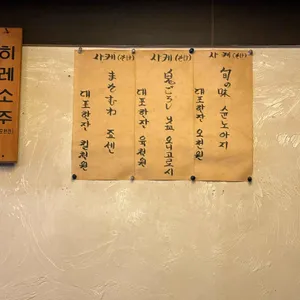 히레소주
사케(온,냉)
旬の味 순노아지
대포한잔 오천원
사케(온,냉)
鬼ごろし 오니고로시
대포한잔 육천원
사케(온,냉)
まさむね 조센
대포한잔 칠천원